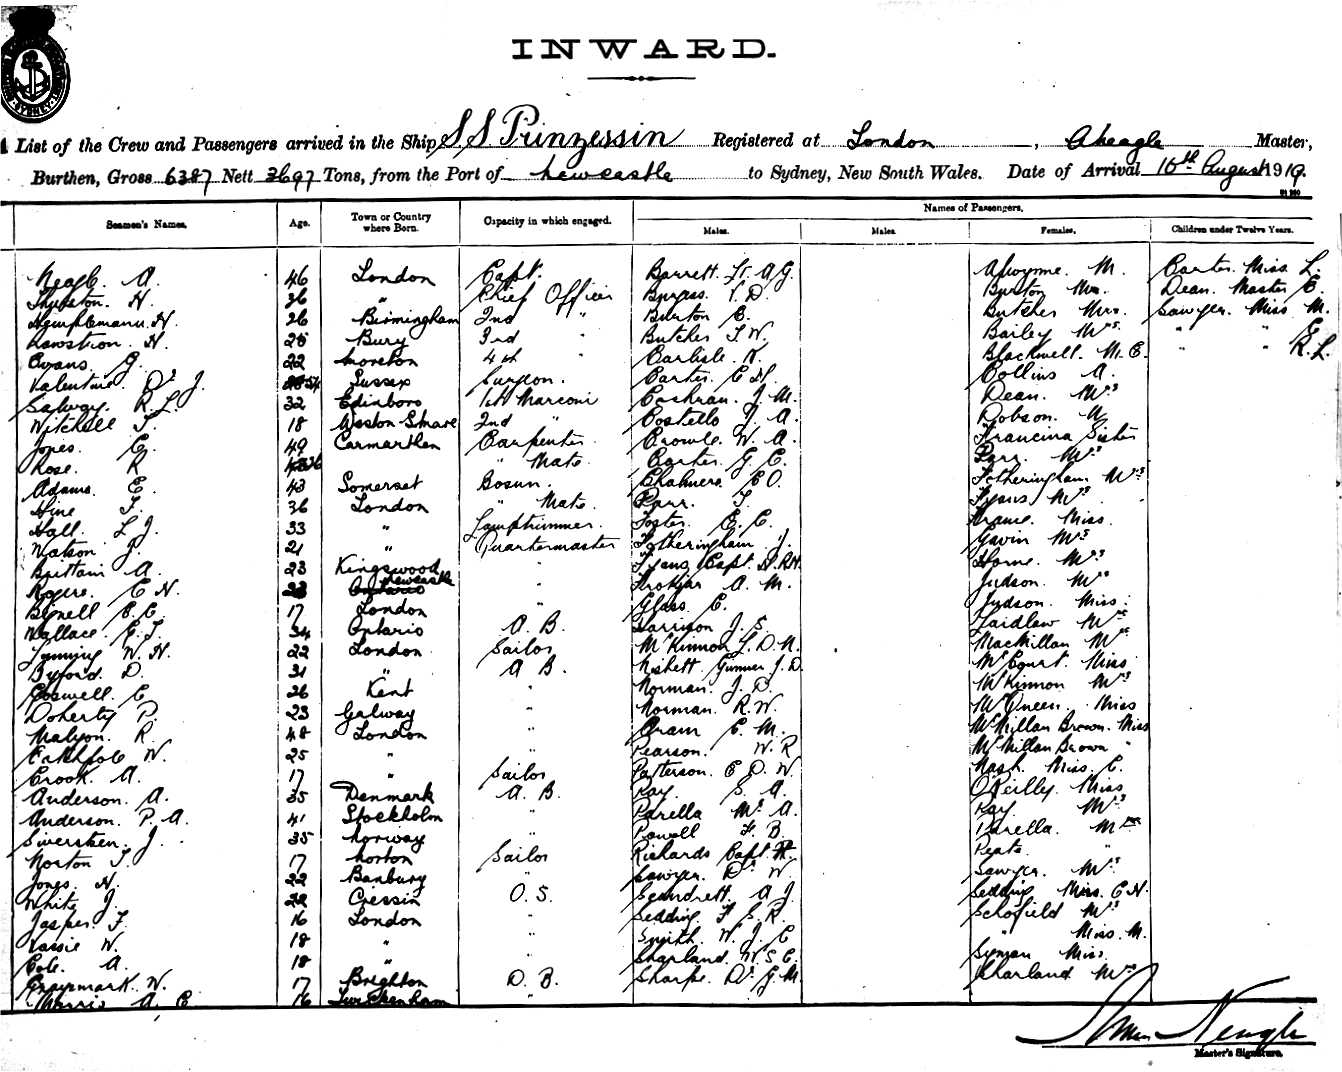 INWARD.
List of the Crew and Passengers arrived in the Ship SS Prinzessin Registered at London, A Neagle Master,
Burthen, Gross 6387 Nett 3697 Tons, from the Port of Newcastle to Sydney, New South Wales. Date of Arrival 10th August 1919.
Seamen's Names. Age. Town or Country where Born. Capacity in which engaged. Names of Passengers.
Males. Males. Females. Children under Twelve Years.
Neagle A. 46 London Capt. Barrett. Lt. A G. M. Carter. Miss. L.
Thurston. H. 36 " Chief Officer Burgss. T. D. Burton Mrs. Dean. Master E.
Hemplemann. H. 26 Birmingham 2nd " Burton E. Butcher Mrs. Sawyer. Miss M.
Lawson. H. 28 Bury 3rd " Butcher F. W. Bailey Mrs. " " E.
Evans. G. 22 Moreton 4th " Carlisle. W. Blackwell. M. E. R. L.
Valentine. Dr J. 54 Sussex Surgeon. Carter. C H. Collins A.
Salway. R. L. 32 1st Marconi Cochran. J. M. Dean. Mrs
Witchell F. 18 Weston-S-Mare 2nd " Costello J. A. Dobson.
Jones. G. 49 Carmarthen Carpenter Crowle. W. A. Francina Sister
Rose. R 36 " Mate. Carter. G. C. Parr. Mrs
Adams. E. 43 Somerset Bosun. Chalmers. E O. Fotheringham Mrs
Hine F. 36 London " Mate. Parr. F. Mrs
Hall. L J. 33 " Lamptrimmer. Foster. E. C. Miss.
Watson J. 21 " Quartermaster Fotheringham J. Gavin Mrs
Brittain A. 23 Kingswood " Capt. H. RN. Horne. Mrs
Rogers. C H. 23 Newcastle " A. M. Judson. Mrs
Bignell E. C. 17 London " Glass. C. Judson. Miss.
Wallace. G. J. 34 Ontario A. B. Harrison J. S. Laidlaw Mrs
W. H. 22 London Sailor McKinnon L. D. N. MacMillan Mrs
Byford. D. 31 " A B. Niskett Gunner J. D. McCourt. Miss
Boswell. C 26 Kent " Norman. J. D. McKinnon Mrs
Doherty P. 23 Galway " Norman. R. W. McQueen. Miss
Malyon. R. 48 London " Oram E. M. McMillan Brown. Miss
W. 25 " " Pearson. W. R McMillan Brown "
Crook. A. 17 " Sailor Patterson. E D. W. Nash. Miss. C.
Anderson. A. 35 Denmark A. B. Ray S. A. O'Reilly. Miss.
Anderson. P. A. 41 Stockholm " Parella Mr. A. Ray Mrs
Sivertsen. J. 35 Norway " Powell F. B. Parella. Mrs
Norton F. 17 Norton Sailor Richards Capt. Peate. "
Jones. H. 22 Banbury " Sawyer. Dr. W. Sawyer. Mrs
White J. 22 Cressin O. S. Scundrett. A J. Sedding Miss. E N.
Jasper. F. 16 London " Sedding F. S. R. Schofield Mrs
W. 18 " " Smith. W. J. C " Miss. M.
Cole. A. 18 " " Sharland. W. S. C. Miss.
W. 17 Brighton D. B. Sharpe. Dr. G. M. Sharland Mrs
Morris A. E. 16 Twickenham "
Neagle
Master's Signature.